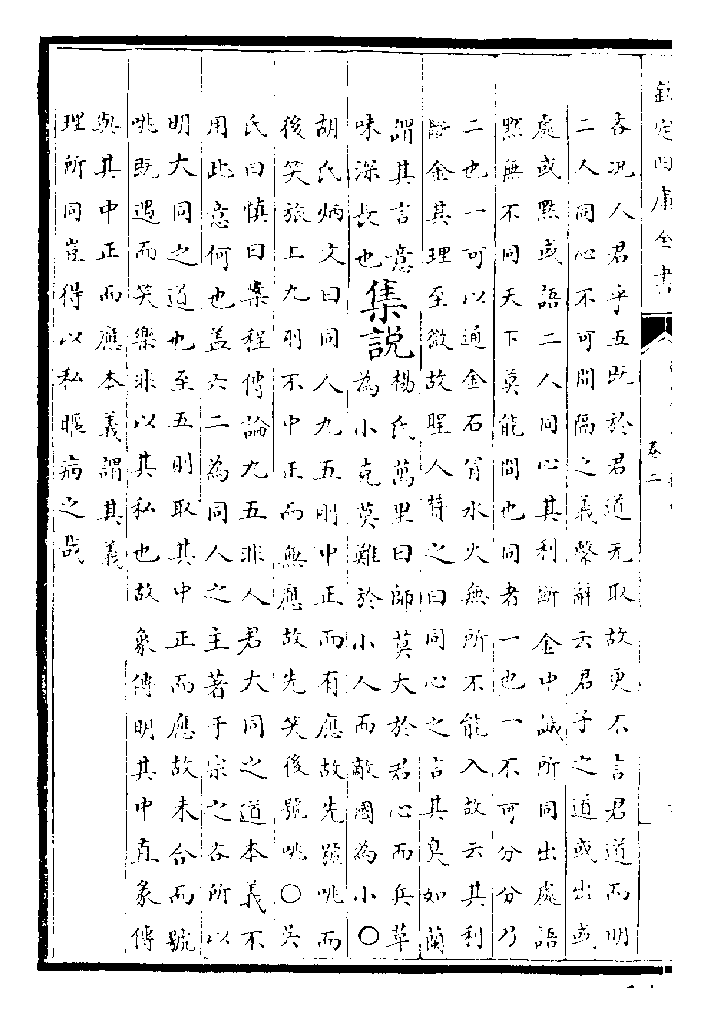 欽定四庫全書
卷二
吝况人君乎五既於君道无取故更不言君道而明
二人同心不可間隔之義繫辭云君子之道或出或
處或默或語二人同心其利斷金中誠所同出處語
默無不同天下莫能間也同者一也一不可分分乃
二也一可以通金石冐水火無所不能入故云其利
斷金其理至微故聖人贊之曰同心之言其臭如蘭
謂其言意
味深長也
集說
楊氏萬里曰師莫大於君心而兵革
為小克莫難於小人而敵國為小○
胡氏炳文曰同人九五剛中正而有應故先號咷而
後笑旅上九剛不中正而無應故先笑後號咷○吳
氏曰慎曰案程傳論九五非人君大同之道本義不
用此意何也蓋六二為同人之主著于宗之吝所以
明大同之道也至五則取其中正而應故未合而號
咷既遇而笑樂非以其私也故象傳明其中直彖傳
與其中正而應本義謂其義
理所同豈得以私暱病之哉